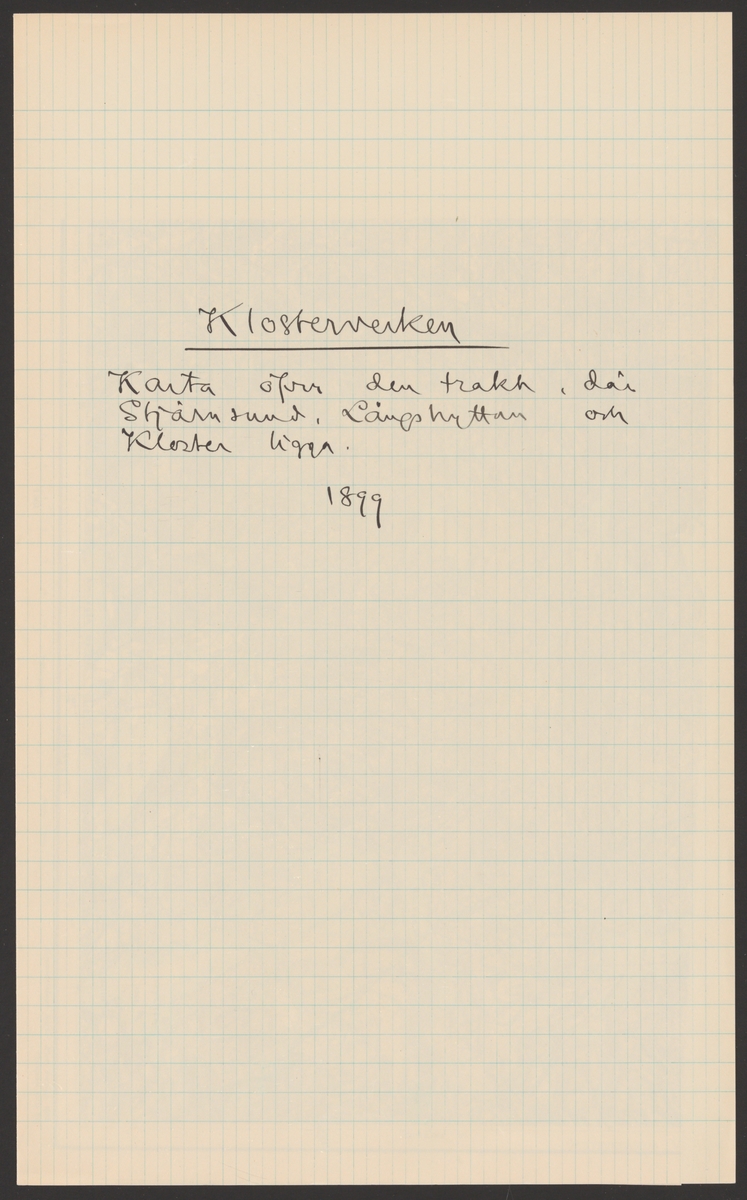 Klosterverken
Karta öfver den trakt, där
Stjärnsund, Långshyttan och
Kloster ligga.
1899